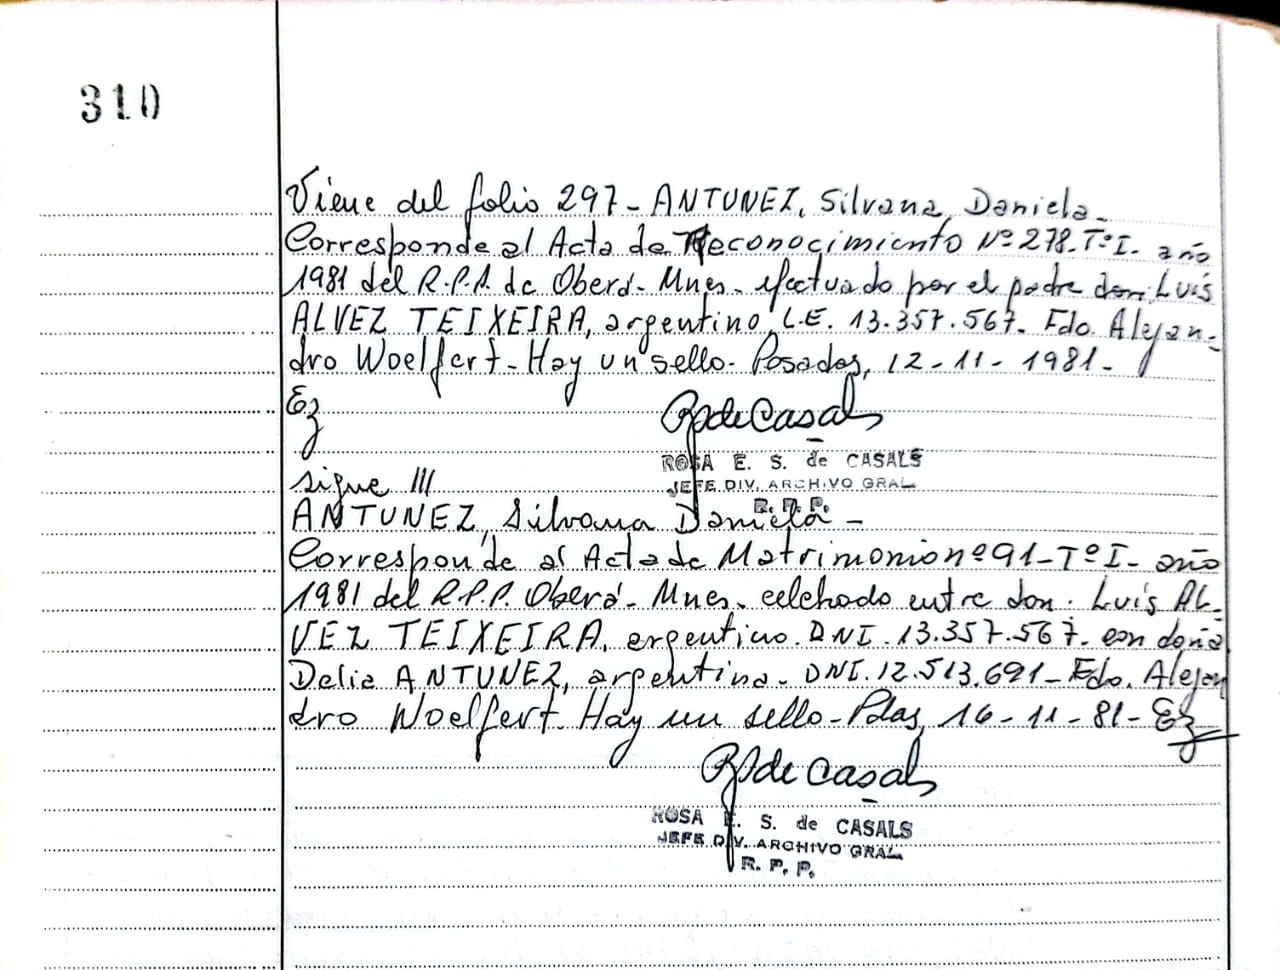 310
Viene del folio 297- ANTUNEZ, Silvana, Daniela-
Corresponde al Acta de Reconocimiento Nº 278. Tº I. año
1981 del R.P.P. de Oberá- Mnes- efectuado por el padre don Luis
ALVEZ TEIXEIRA, argentino, L.E. 13.357.567. Fdo. Alejan-
dro Woelfert- Hay un sello- Posadas, 12-11-1981-
Ez
RdeCasals
ROSA E. S. de CASALS
JEFE DIV. ARCHIVO GRAL
R. P. P.
sigue ///
ANTUNEZ, Silvana Daniela-
Corresponde al Acta de Matrimonio nº 91- Tº I- año
1981 del R.P.P. Oberá- Mnes- celebrado entre don. Luis AL-
VEZ TEIXEIRA, argentino. DNI. 13.357.567. con doña
Delia ANTUNEZ, argentina- DNI. 12.513.691- Fdo. Alejan
dro Woelfert- Hay un sello- Pdas, 16-11-81- Ez
RdeCasals
ROSA E. S. de CASALS
JEFE DIV. ARCHIVO GRAL
R. P. P.